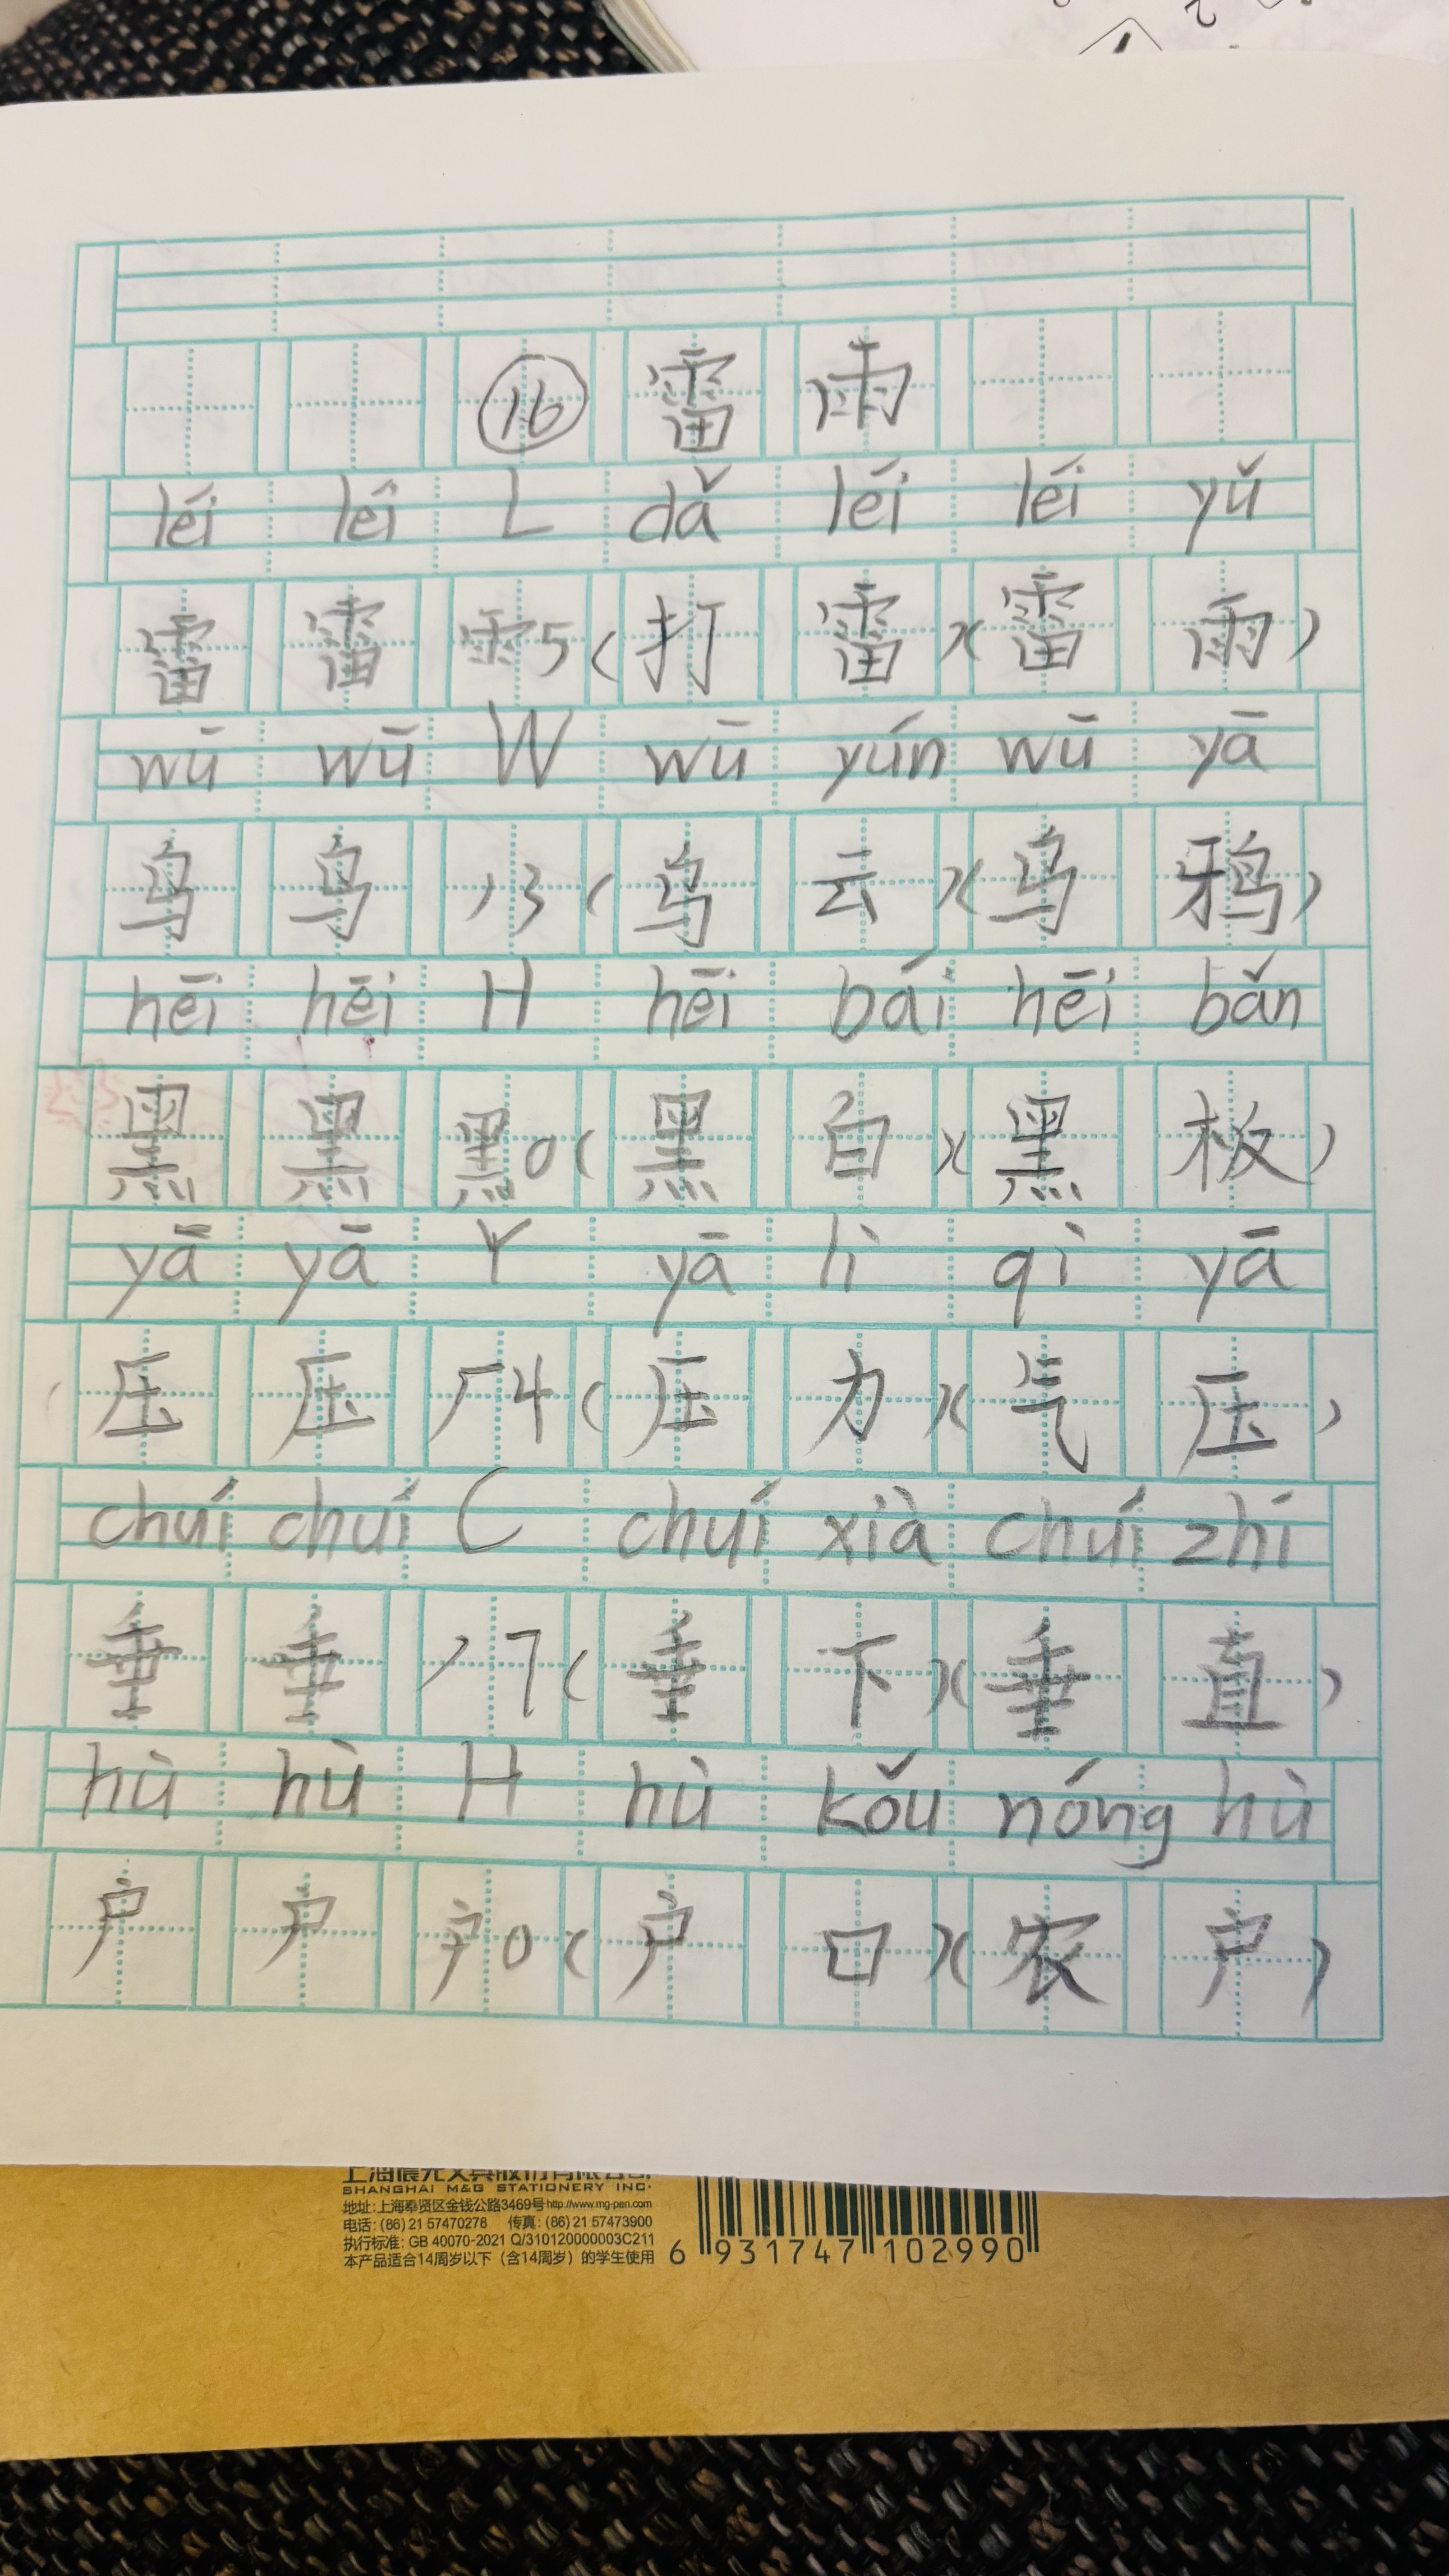 ⑯ 雷 雨
léi léi L dǎ léi léi yǔ
雷 雷 雨5(打 雷)(雷 雨)
wū wū W wū yún wū yā
乌 乌 丿3(乌 云)(乌 鸦)
hēi hēi H hēi bái hēi bǎn
黑 黑 黑0(黑 白)(黑 板)
yā yā Y yā lì qì yā
压 压 厂4(压 力)(气 压)
chuí chuí C chuí xià chuí zhí
垂 垂 丿7(垂 下)(垂 直)
hù hù H hù kǒu nóng hù
户 户 户0(户 口)(农 户)
SHANGHAI M&G STATIONERY INC.
地址:上海奉贤区金钱公路3469号 http://www.mg-pen.com
电话:(86)21 57470278 传真:(86)21 57473900
执行标准:GB 40070-2021 Q/310120000003C211
本产品适合14周岁以下(含14周岁)的学生使用
6 931747 102990